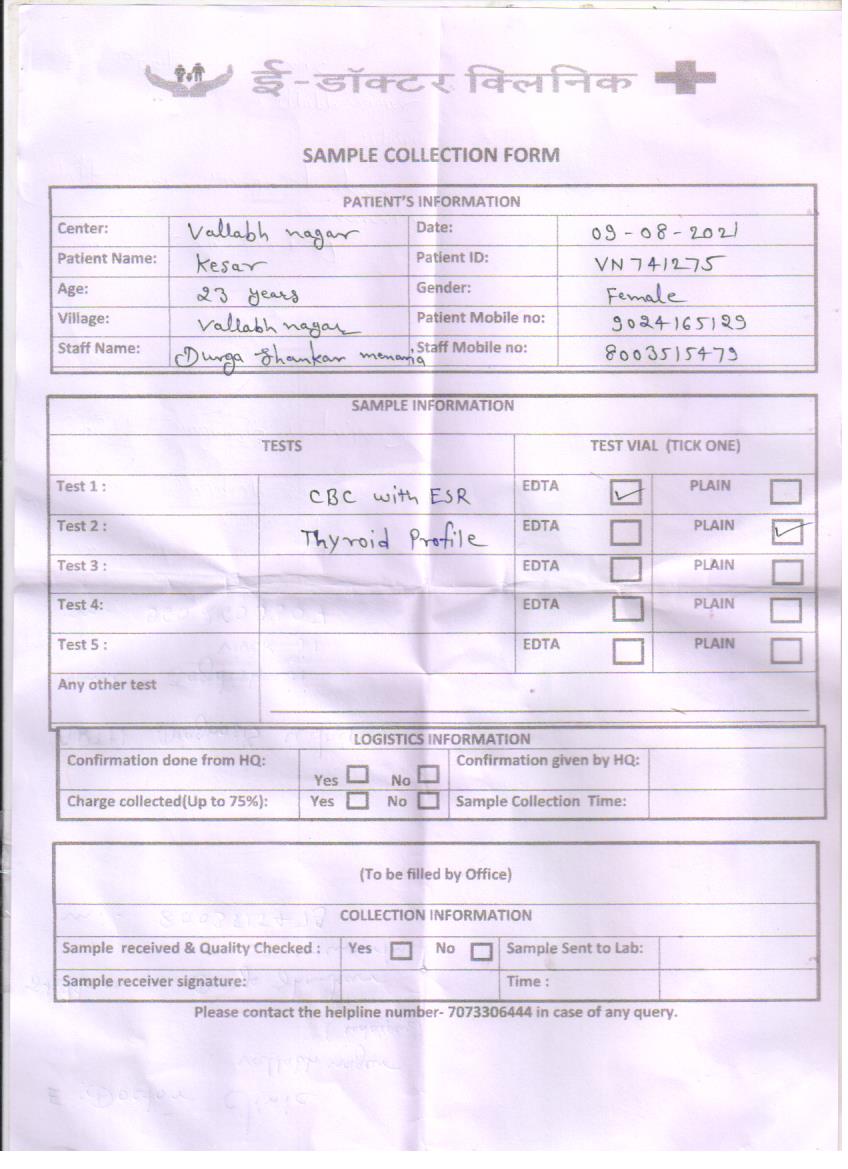 ई-डॉक्टर क्लिनिक
SAMPLE COLLECTION FORM
PATIENT'S INFORMATION
Center: Vallabh nagar Date: 09-08-2021
Patient Name: Kesar Patient ID: VN741275
Age: 23 years Gender: Female
Village: Vallabh nagar Patient Mobile no: 9024165129
Staff Name: Durga Shankar menaria Staff Mobile no: 8003515479
SAMPLE INFORMATION
TESTS TEST VIAL (TICK ONE)
Test 1 : CBC with ESR EDTA PLAIN
Test 2 : Thyroid Profile EDTA PLAIN
Test 3 : EDTA PLAIN
Test 4: EDTA PLAIN
Test 5 : EDTA PLAIN
Any other test
LOGISTICS INFORMATION
Confirmation done from HQ: Yes No Confirmation given by HQ:
Charge collected(Up to 75%): Yes No Sample Collection Time:
(To be filled by Office)
COLLECTION INFORMATION
Sample received & Quality Checked : Yes No Sample Sent to Lab:
Sample receiver signature: Time :
Please contact the helpline number- 7073306444 in case of any query.